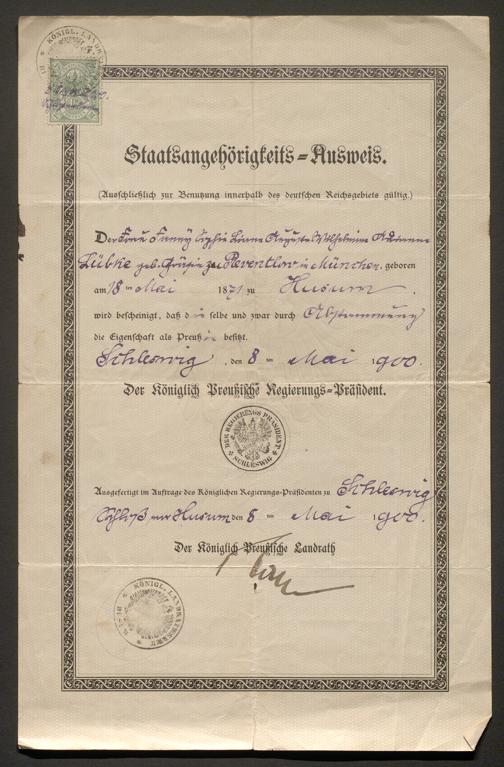 KÖNIGL. LANDR
Staatsangehörigkeits-Ausweis.
(Ausschließlich zur Benutzung innerhalb des deutschen Reichsgebiets gültig.)
Der Frau Fanny Sophie Liane Auguste Wilhelmine Adrienne
Lübke geb. Gräfin zu Reventlow in München, geboren
am 18 ten Mai 1871 zu Husum.
wird bescheinigt, daß dieselbe und zwar durch Abstammung
die Eigenschaft als Preußin besitzt.
Schleswig, den 8 ten Mai 1900.
Der Königlich Preußische Regierungs-Präsident.
DER REGIERUNGS PRÄSIDENT
SCHLESWIG
Ausgefertigt im Auftrage des Königlichen Regierungs-Präsidenten zu Schleswig
Schloß vor Husum den 8 ten Mai 1900.
Der Königlich Preußische Landrath
KÖNIGL. LANDRATH